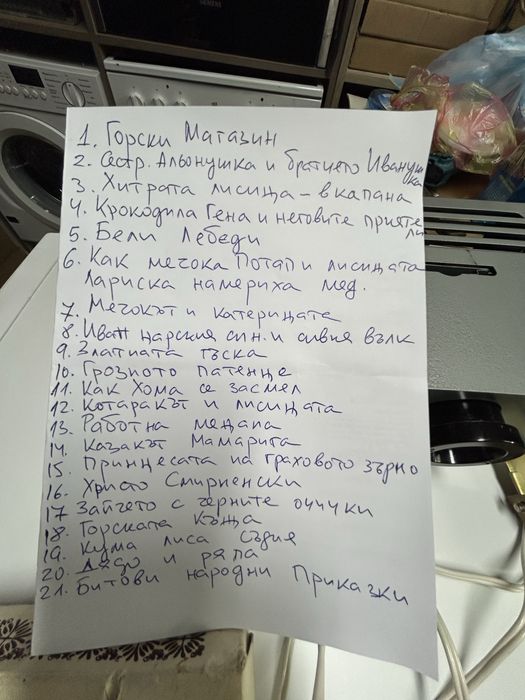 SIEMENS
1. Горски Магазин
2. Сестр. Альонушка и братчето Иванушка
3. Хитрата лисица – в капана
4. Крокодила Гена и неговите приятели
5. Бели Лебеди
6. Как мечока Потап и лисицата
Лариска намериха мед.
7. Мечокът и катерицата
8. Иван царския син. и сивия вълк
9. Златната гъска
10. Грозното патенце
11. Как Хома се засмел
12. Котаракът и лисицата
13. Работна мецана
14. Казакът Мамарига
15. Принцесата на граховото зърно
16. Христо Смирненски
17 Зайчето с черните очички
18. Горската къща
19. Кума лиса съдия
20. Дядо и ряпа
21. Битови народни Приказки